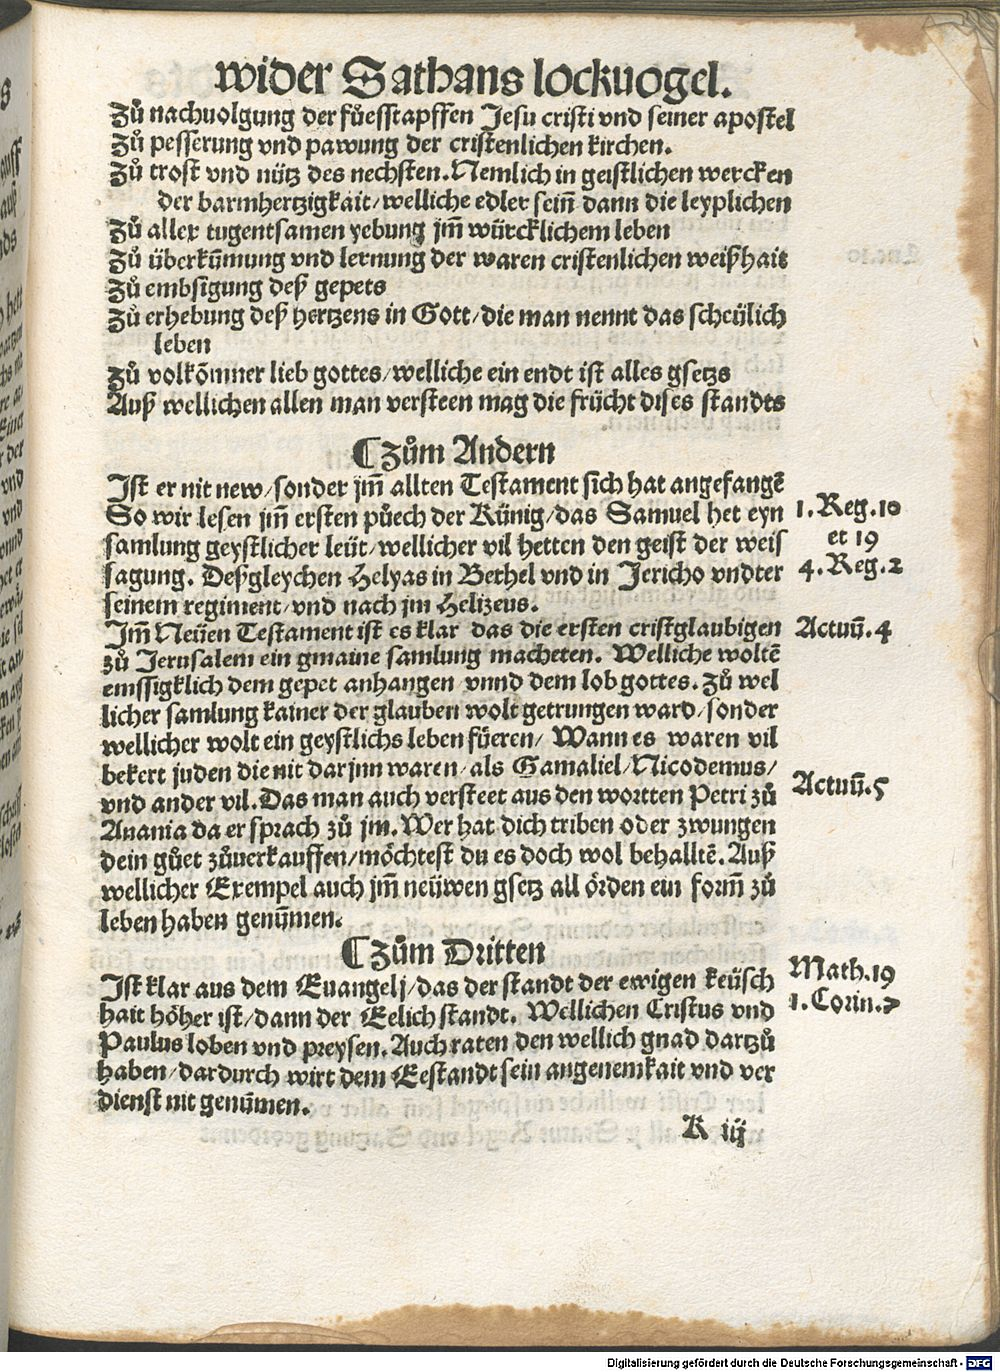 wider Sathans lockuogel.
Zů nachuolgung der fůesstapffen Jesu cristi vnd seiner apostel
Zů pesserung vnd pawung der cristenlichen kirchen.
Zů trost vnd nütz des nechsten. Nemlich in geistlichen wercken
der barmhertzigkait/ welliche edler sein̄ dann die leyplichen
Zů aller tugentsamen yebung jm̄ würcklichem leben
Zů überkūmung vnd lernung der waren cristenlichen weißhait
Zů embsigung deß gepets
Zů erhebung deß hertzens in Gott/ die man nennt das scheülich
leben
Zů volkōmner lieb gottes/ welliche ein endt ist alles gsetzs
Auß wellichen allen man versteen mag die frücht dises standts
⸿ Zům Andern
Ist er nit new/ sonder jm̄ allten Testament sich hat angefangē
So wir lesen jm̄ ersten půech der Künig/ das Samuel het eyn
samlung geystlicher leüt/ wellicher vil hetten den geist der weis
sagung. Deßgleychen Helyas in Bethel vnd in Jericho vndter
seinem regiment/ vnd nach jm Helizeus.
1. Reg. 10
et 19
4. Reg. 2
Jm̄ Neüen Testament ist es klar das die ersten cristglaubigen
zů Jerusalem ein gmaine samlung macheten. Welliche woltē
emssigklich dem gepet anhangen vnnd dem lob gottes. Zů wel
licher samlung kainer der glauben wolt getrungen ward/ sonder
wellicher wolt ein geystlichs leben füeren/ Wann es waren vil
bekert juden die nit darjnn waren/ als Gamaliel/ Nicodemus/
vnd ander vil. Das man auch versteet aus den wortten Petri zů
Anania da er sprach zů jm. Wer hat dich triben oder zwungen
dein gůet zůuerkauffen/ möchtest du es doch wol behalltē. Auß
wellicher Exempel auch jm̄ neüwen gsetz all örden ein form̄ zů
leben haben genūmen.
Actuū. 4
Actuū. 5
⸿ Zům Dritten
Ist klar aus dem Euangelj/ das der standt der ewigen keüsch
hait höher ist/ dann der Eelich standt. Wellichen Cristus vnd
Paulus loben vnd preysen. Auch raten den wellich gnad dartzů
haben/ dardurch wirt dem Eestandt sein angenemkait vnd ver
dienst nit genūmen.
Math. 19
1. Corin. 7
K iij
Digitalisierung gefördert durch die Deutsche Forschungsgemeinschaft - DFG